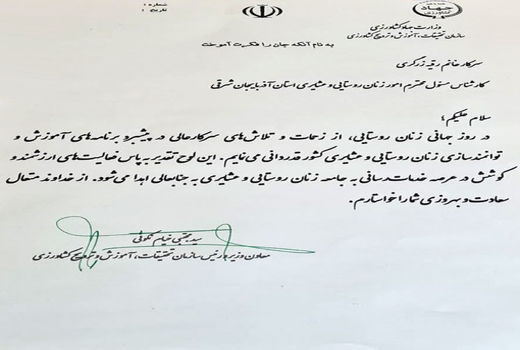 شماره :
تاریخ :
جهاد
کشاورزی
وزارت جهاد کشاورزی
سازمان تحقیقات، آموزش و ترویج کشاورزی
به نام آنکه جان را فکرت آموخت
سرکار خانم رقیه زرگری
کارشناس مسئول محترم امور زنان روستایی و عشایری استان آذربایجان شرقی
سلام علیکم؛
در روز جهانی زنان روستایی، از زحمات و تلاش‌های سرکارعالی در پیشبرد برنامه‌های آموزش و
توانمندسازی زنان روستایی و عشایری کشور قدردانی می‌نمایم. این لوح تقدیر به پاس فعالیت‌های ارزشمند و
کوشش در عرصه خدمات‌رسانی به جامعه زنان روستایی و عشایری به جنابعالی اهدا می‌شود. از خداوند متعال
سعادت و بهروزی شما را خواستارم.
سید مجتبی خیام نکوئی
معاون وزیر و رئیس سازمان تحقیقات، آموزش و ترویج کشاورزی